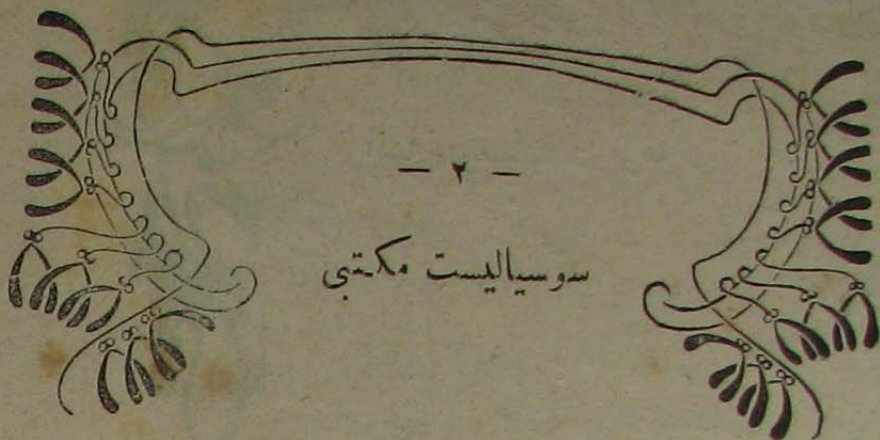 — ٢ —
سوسیالیست مكتبی